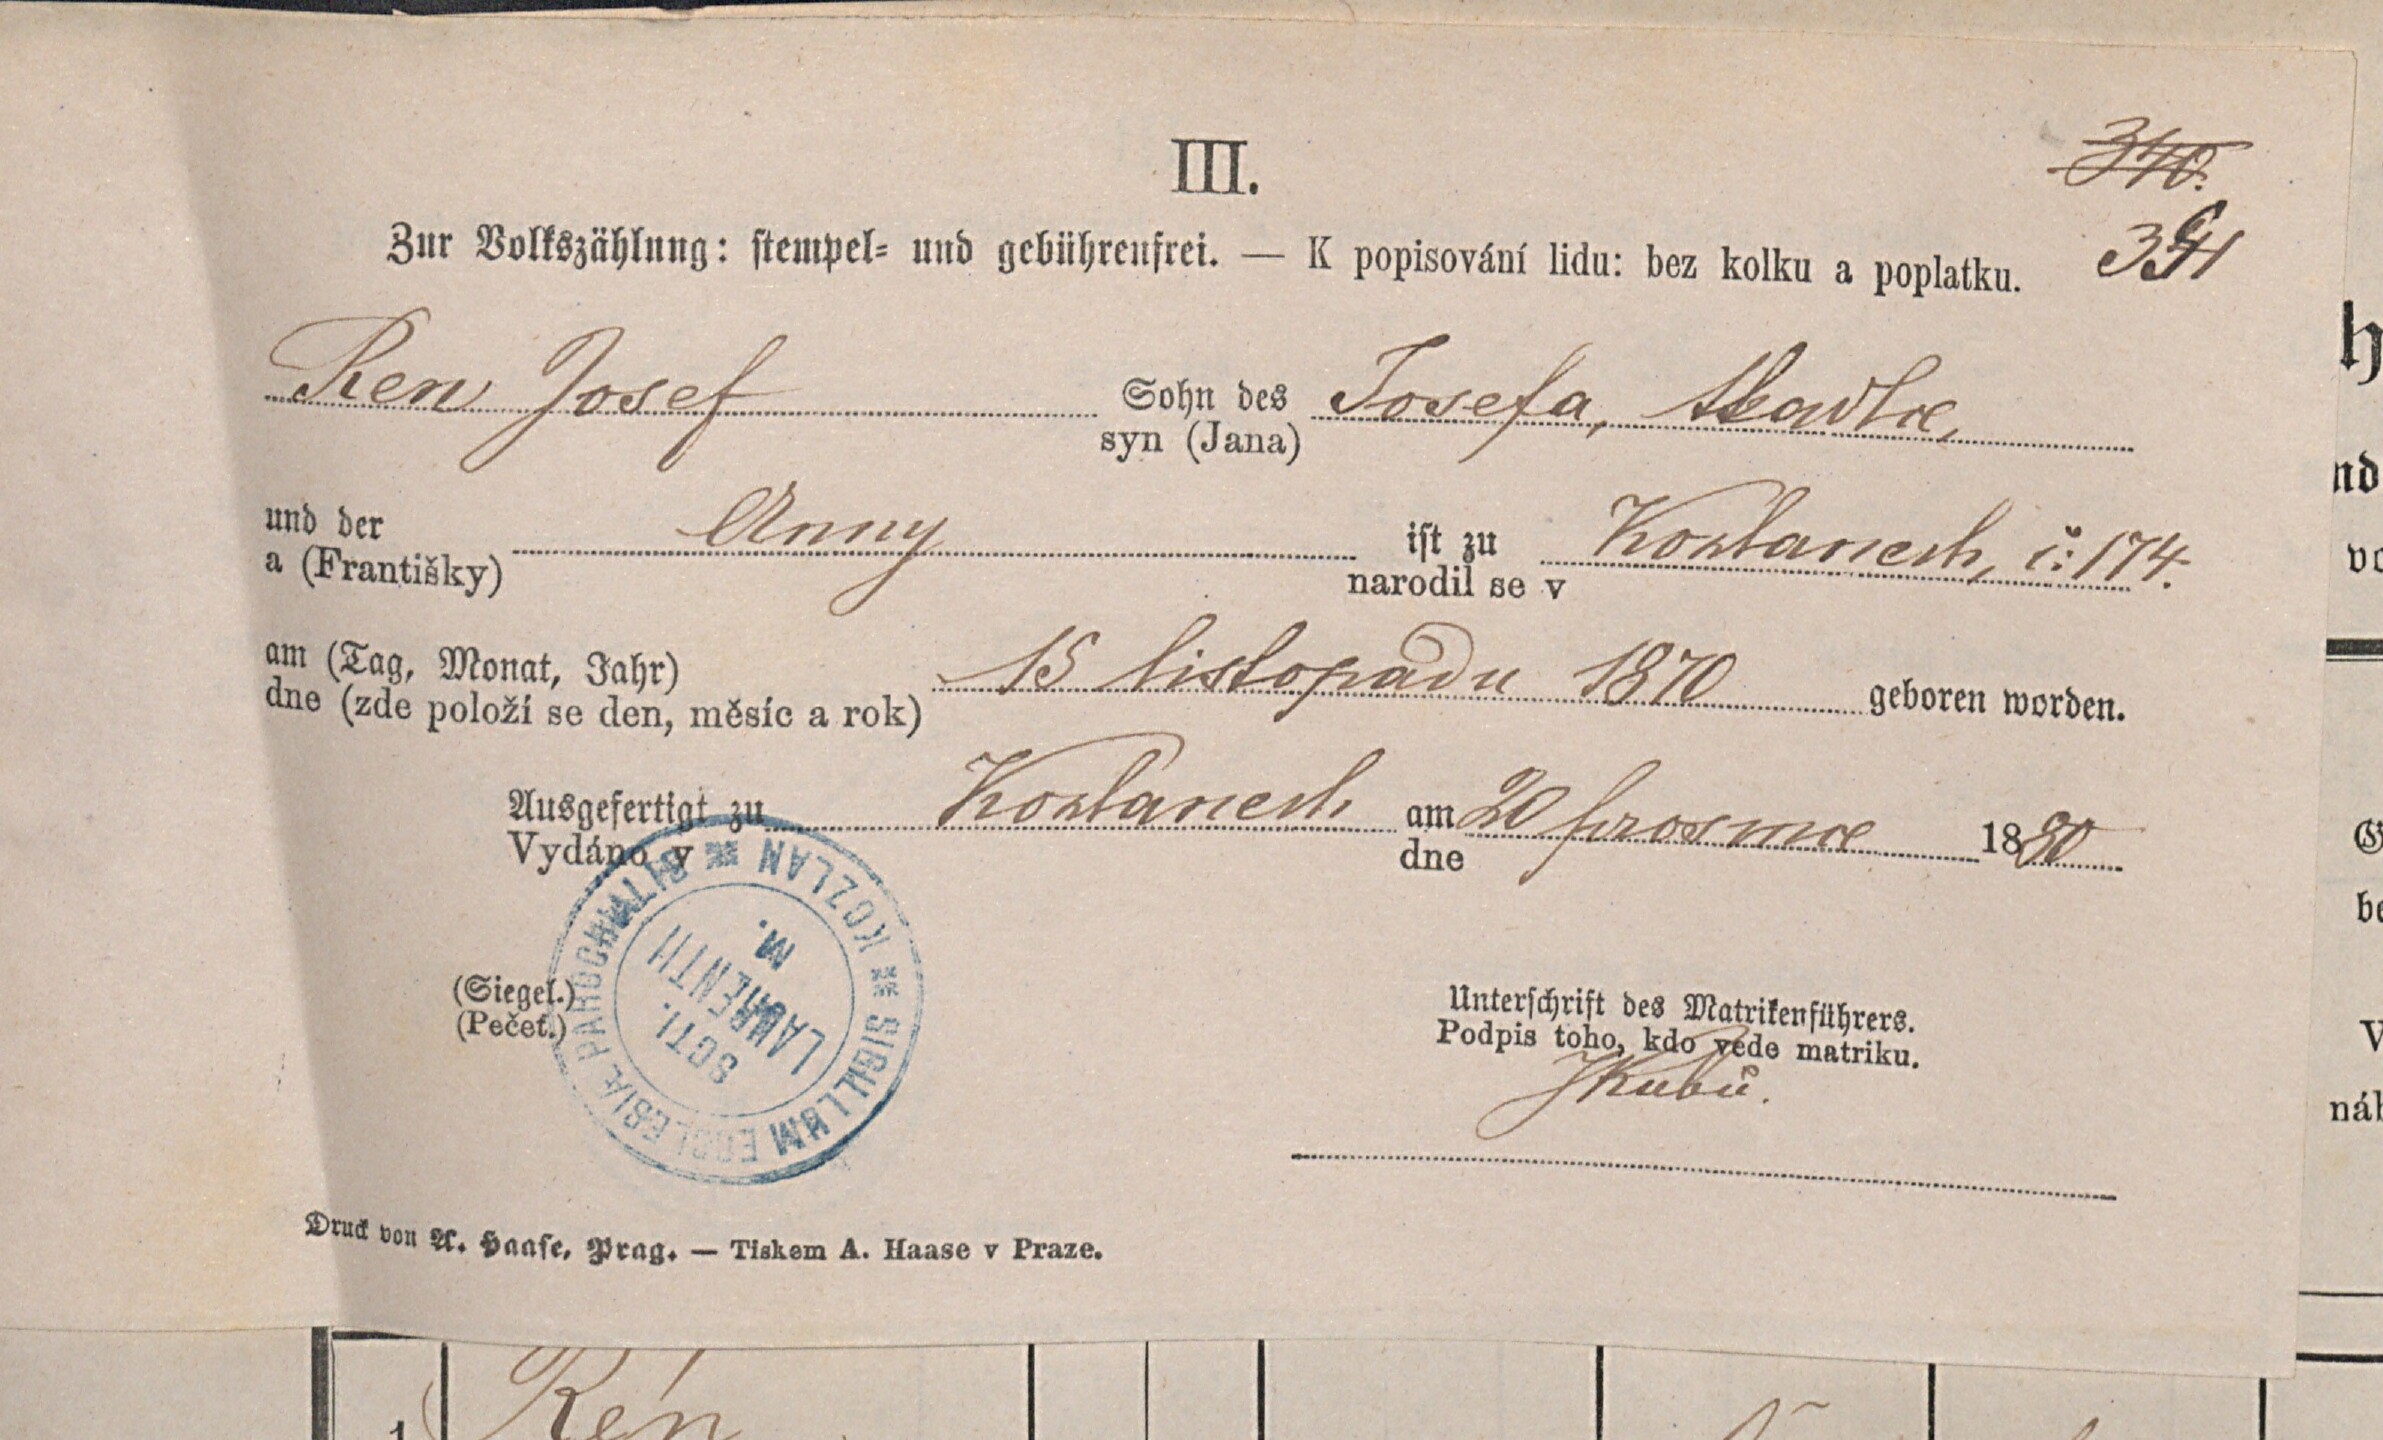 III.
340.
Zur Volkszählung: stempel- und gebührenfrei. — K popisování lidu: bez kolku a poplatku.
Ren Josef Sohn des Josefa,
syn (Jana)
und der Anny ist zu Kozlanech, č: 174.
a (Františky) narodil se v
am (Tag, Monat, Jahr) 15 listopadu 1870 geboren worden.
dne (zde položí se den, měsíc a rok)
Ausgefertigt zu Kozlanech am 20 prosince 1880
Vydáno v dne
SIGILLUM ECCLESIÆ PAROCHIALIS KOZLAN
SCTI.
LAURENTII
M.
(Siegel.)
(Pečeť.)
Unterschrift des Matrikenführers.
Podpis toho, kdo vede matriku.
JKubů.
Druck von A. Haase, Prag. — Tiskem A. Haase v Praze.
1 Rén